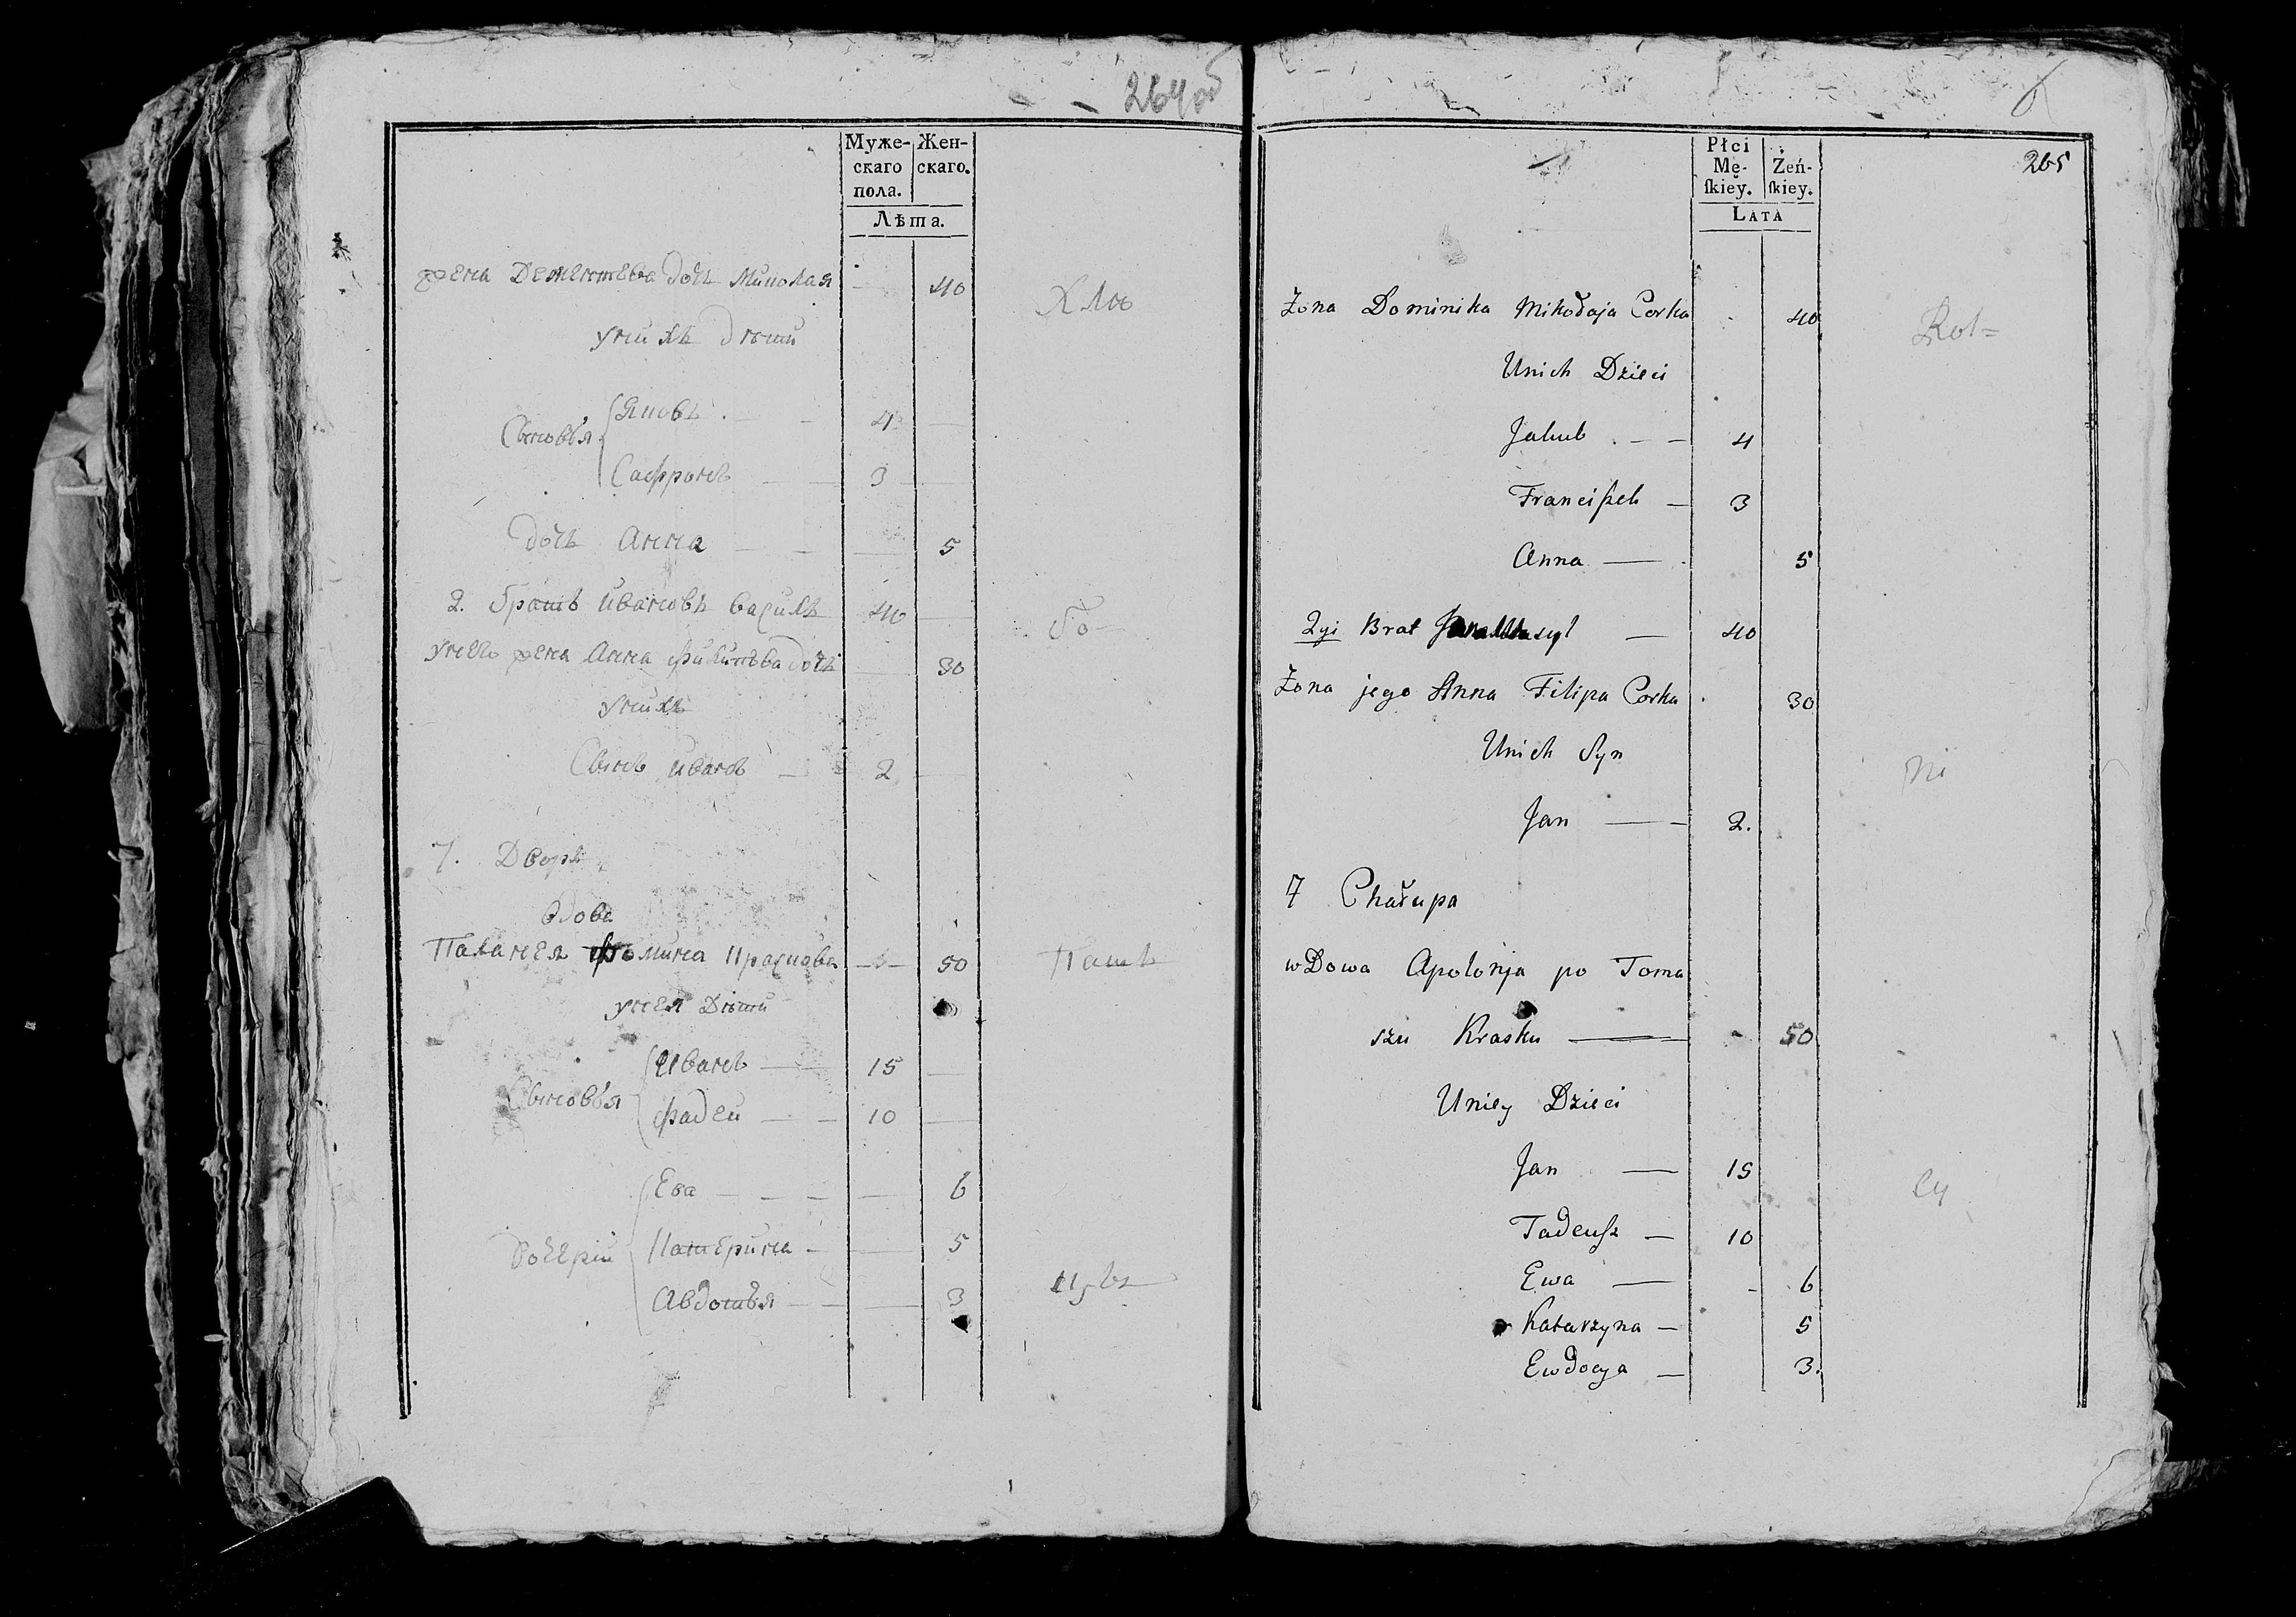 264об
Муже-
скаго
пола.
Жен-
скаго.
Лѣта.
жена Дементѣва дочь Миколая - 40
Хлю
у нихъ дѣти
Сыновья
Яковъ 4
Сафронъ 3
дочь Анна 5
2. братъ Ивановъ Василь 40
бо
у него жена Анна Филипѣва дочь 30
у нихъ
Сынъ Иванъ 2
7. Дворъ
вдова
Паланея Фомина Краскова 50
Пашъ
у нея Дѣти
Сыновья
Иванъ 15
Фадей 10
дочерїи
Ева 6
Катерина 5
Авдотья 3
265
Płci
Mę-
ſkiey.
Żeń-
ſkiey.
LATA
Żona Dominika Mikołaja Corka 40
Rol=
Unich Dzieci
Jakub 4
Franciſzek 3
Anna 5
2gi Brat 40
Żona jego Anna Filipa Corka 30
Unich Syn
ni
Jan 2.
7 Chałupa
wDowa Apolonja po Toma
szu Krasku 50
Uniey Dzieci
Jan 15
cy
Tadeuſz 10
Ewa 6
Katarzyna 5
Ewdocya 3.